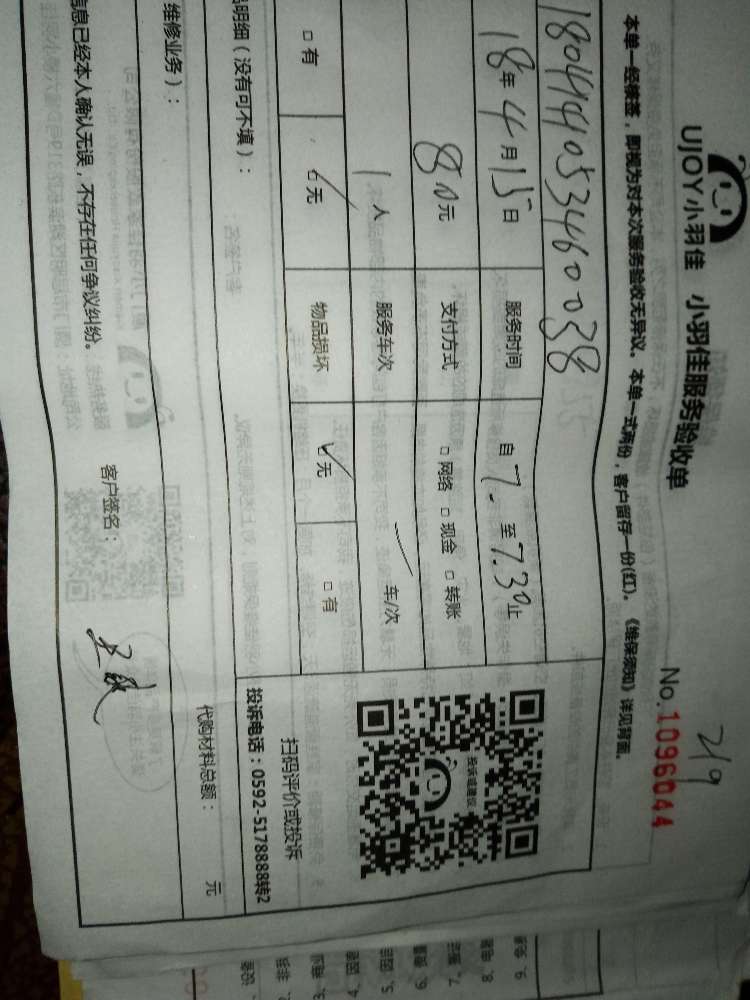 219
UJOY小羽佳 小羽佳服务验收单 No.1096044
本单一经接签，即视为对本次服务验收无异议。本单一式两份，客户留存一份(红)。《维保须知》详见背面。
18041410534460038
18年4月15日 服务时间 自7.至7.30止
80元 支付方式 □网络 □现金 □转账
1人 服务车次 车/次
□有 ☑无 物品损坏 ☑无 □有
扫码评价或投诉
投诉电话：0592-5178888转2
明细（没有可不填）：
代购材料总额： 元
维修业务）：
信息已经本人确认无误，不存在任何争议纠纷。 客户签名：